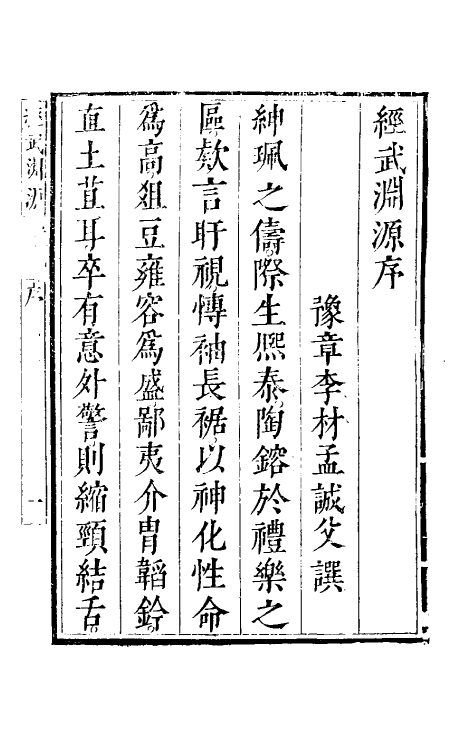 經武淵源序
豫章李材孟誠父譔
紳珮之儔際生熈泰陶鎔於禮樂之
區欸言盱視慱袖長裾以神化性命
爲高俎豆雍容爲盛鄙夷介冑韜鈐
直土苴耳卒有意外警則縮頸結舌
經武淵源 序 一